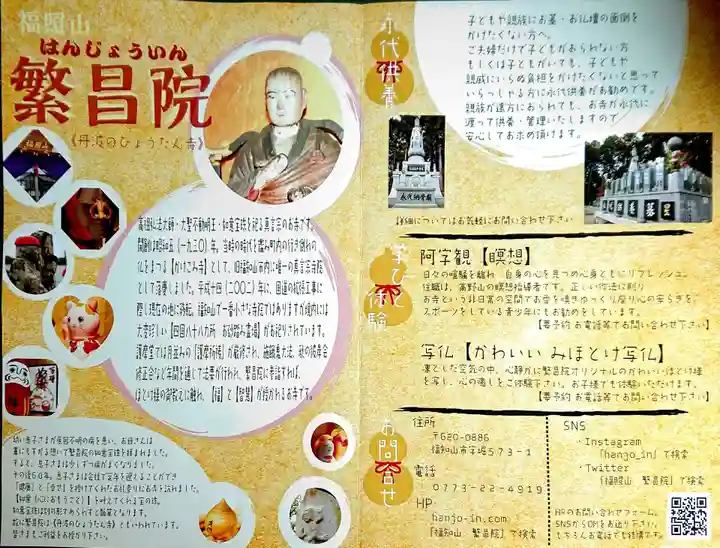 福照山
はんじょういん
繁昌院
《丹波のひょうたん寺》
高祖弘法大師・大聖不動明王・如意宝珠を祀る真言宗のお寺です。
開創は昭和五(一九三〇)年。
仏をまつる【かけこみ寺】として、旧福知山市内に唯一の真言宗寺院
として落慶しました。平成十四(二〇〇二)年に、国道の拡張工事に
際し現在の地に移転。福知山で一番小さな寺院ではありますが境内には
大変珍しい【四国八十八カ所 お砂踏み霊場】がお祀りされています。
護摩堂では月並みの【護摩祈祷】が厳修され、施餓鬼大法、秋の彼岸会
修正会など年間を通して法要が行われ、繁昌院に参詣すれば、
ほとけ様の御教えに触れ、【福】と【智慧】が授かれるお寺です。
幼い息子さまが原因不明の病を患い、お母さんは
藁にもすがる想いで繁昌院の如意宝珠を拝まれました。
すると、息子さまは少しずつ病がよくなりました。
その後60年。息子さまは会社で定年を迎えることができ
「健康」と「幸せ」を授けてくれたお礼参りにお寺を訪れました。
【如意(心におもうこと)】を叶えてくれる玉の珠。
如意宝珠は別の形であらわすと瓢箪となります。
故に繁昌院は《丹波のひょうたん寺》ともいわれています。
皆さまもご利益をお授かり下さい。
永代供養
子どもや親族にお墓・お仏壇の面倒を
かけたくない方へ。
ご夫婦だけで子どもがおられない方
もしくは子どもがいても、子どもや
親戚にいらぬ負担をかけたくないと思って
いらっしゃる方に永代供養がお勧めです。
親族が遠方におられても、お寺が永代に
渡って供養・管理いたしますので
安心してお求め頂けます。
永代納骨廟
詳細についてはお気軽にお問い合わせ下さい
学びと体験
阿字観【瞑想】
日々の喧騒を離れ 自身の心を見つめ心身ともにリフレッシュ。
住職は、高野山の瞑想指導者です。正しい作法に則り
お寺という非日常の空間でお香を嗅ぎゆっくり座り心の安らぎを。
スポーツをしている青少年にもお勧めをしています。
【要予約 お電話等でお問い合わせ下さい】
写仏【かわいい みほとけ写仏】
凛とした空気の中、心静かに繁昌院オリジナルのかわいいほとけ様
を写し、心の癒しをご体験下さい。お子様でも体験いただけます。
【要予約 お電話等でお問い合わせ下さい】
お問合せ
住所
〒620-0886
福知山市字堀573-1
電話
0773-22-4919
HP
hanjo-in.com
「福知山 繁昌院」で検索
SNS
・Instagram
「hanjo_in」で検索
・Twitter
「福照山 繁昌院」で検索
HPのお問い合わせフォーム、
SNSからDMをお送り下さい。
もちろんお電話でも結構です。